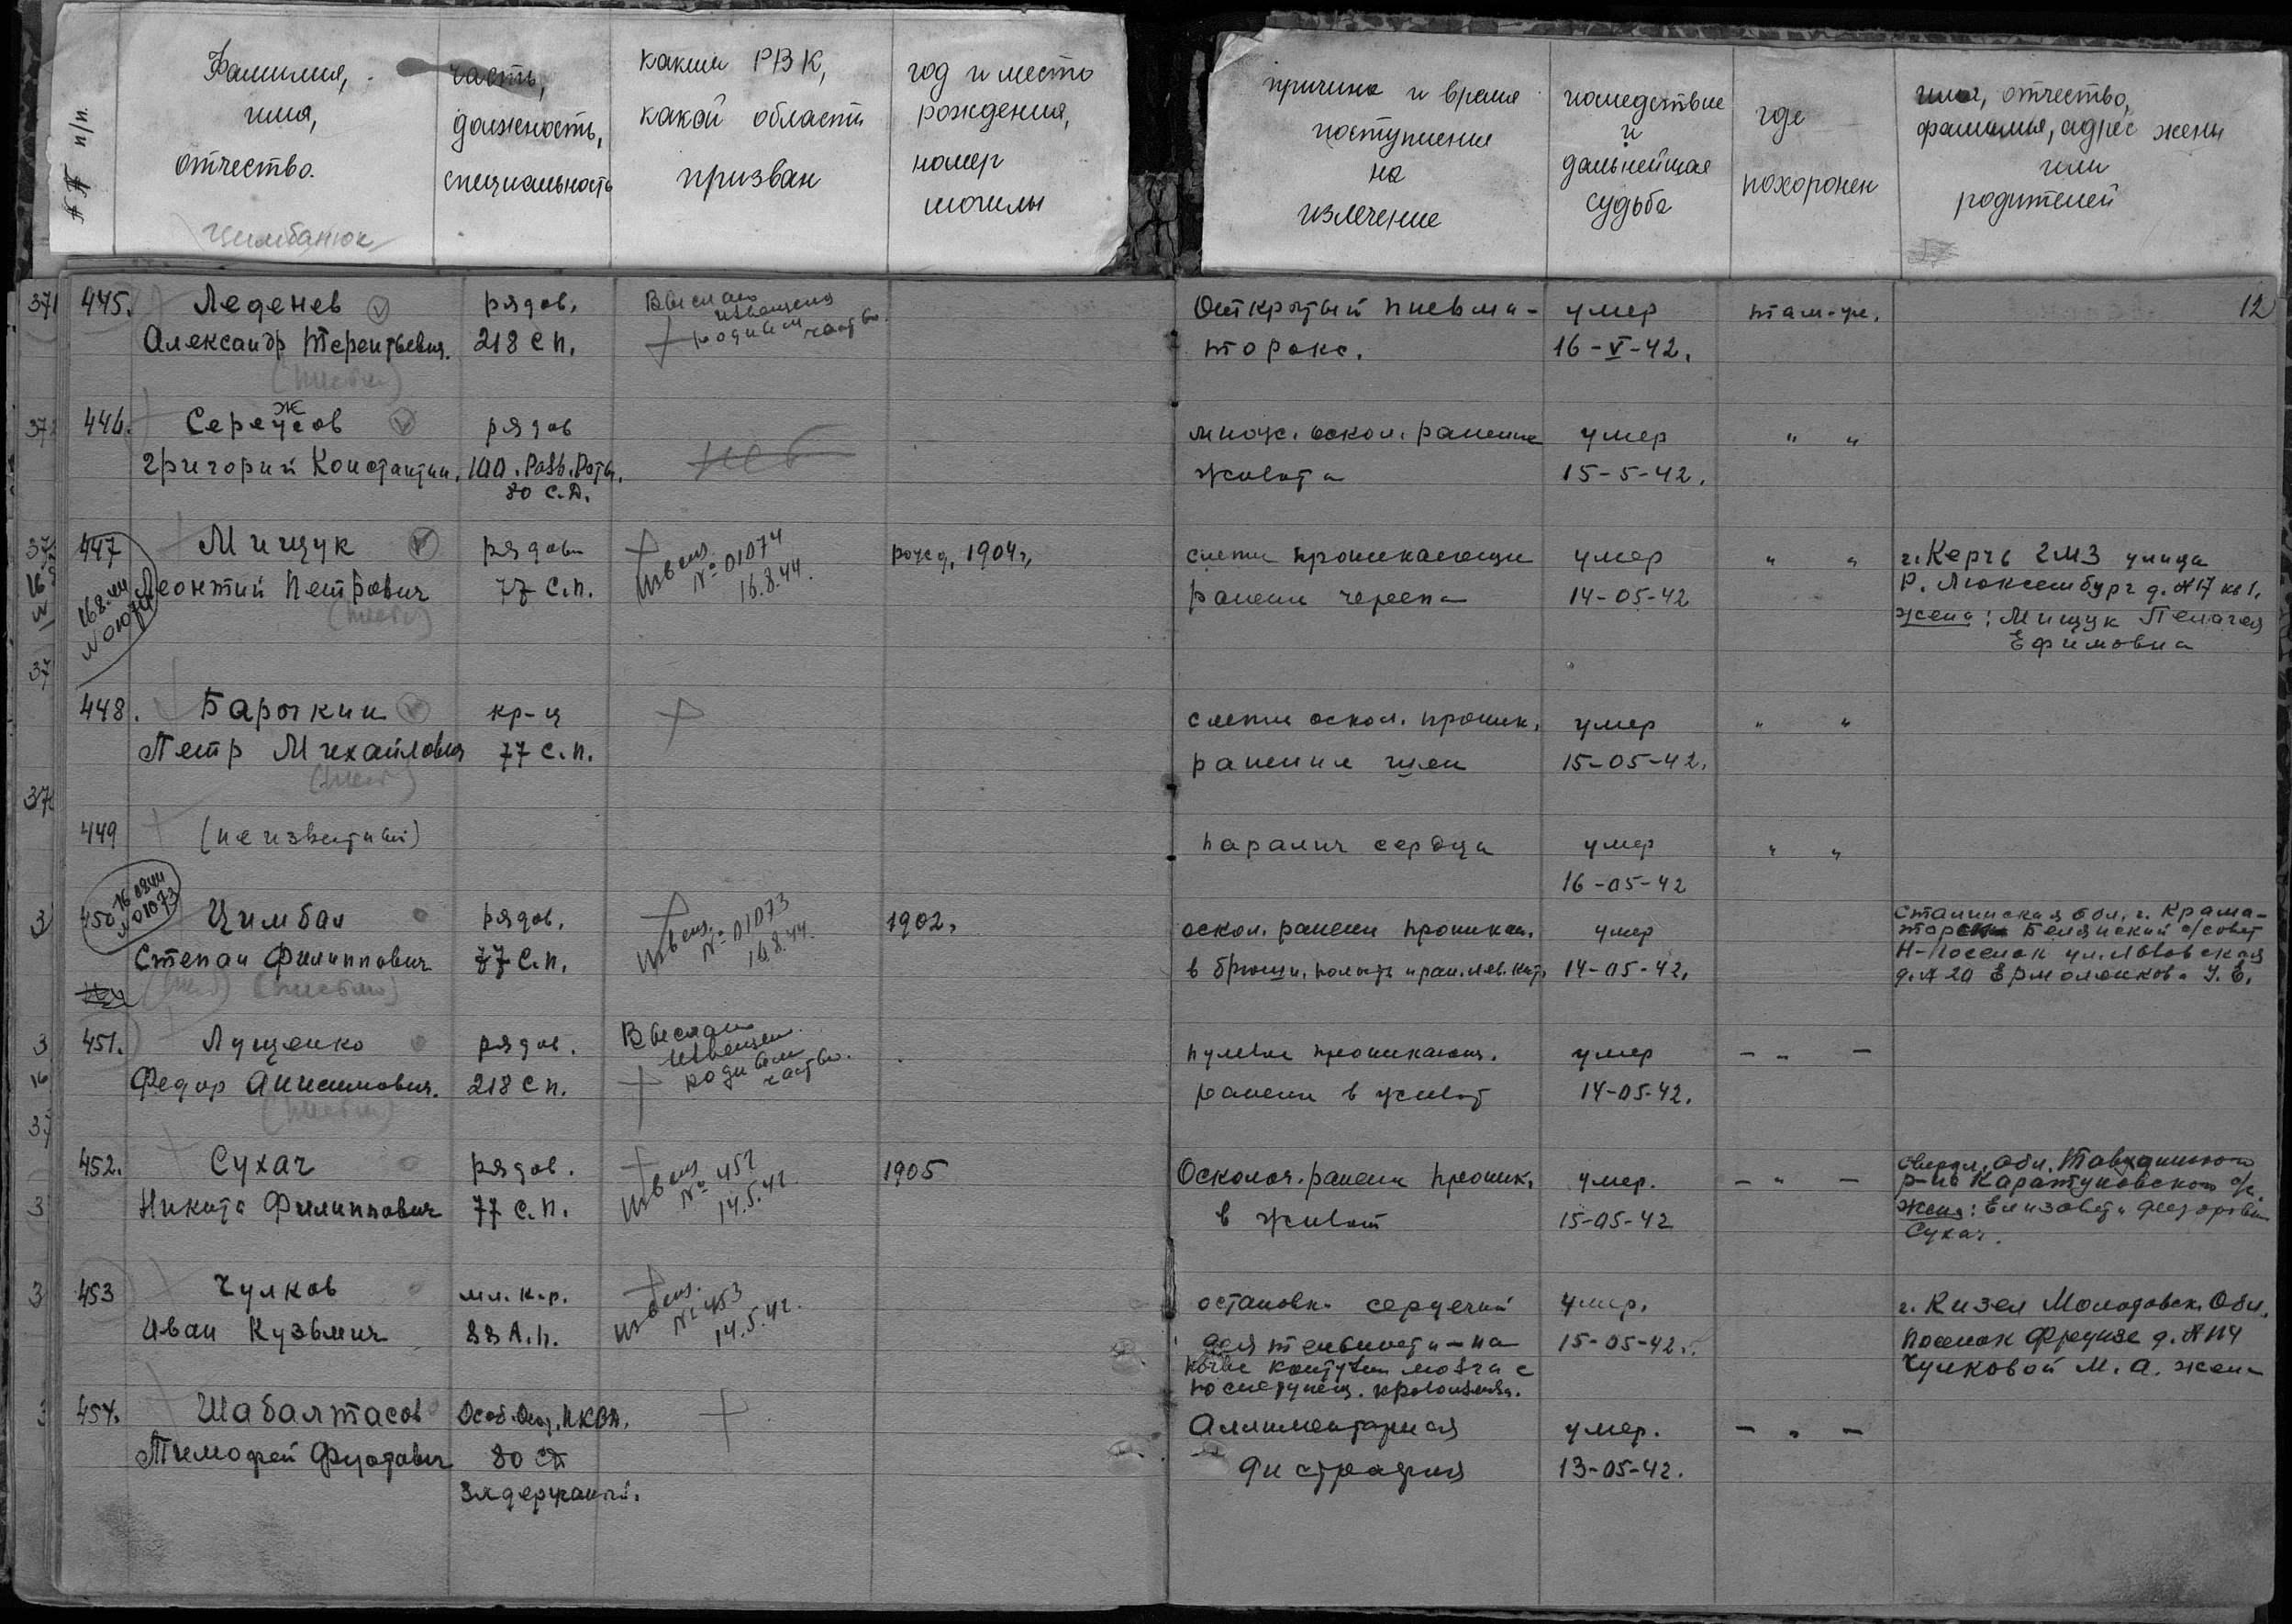 №№ п/п.
Фамилия,
имя,
отчество.
Цимбанюк
часть,
должность,
специальность
каким РВК,
какой области
призван
год и место
рождения,
номер
могилы
причина и время
поступления
на
излечение
последствие
и
дальнейшая
судьба
где
похоронен
имя, отчество,
фамилия, адрес жены
или
родителей
12
371 445. Леденев рядов. Выслано
извещения
родным частью.
Открытый пневма- умер там-же.
Александр Терентьевич. 218 с п. торакс. 16-V-42.
446. Сережов рядов множ. оскол. ранение умер " "
Григорий Константин. 100. Разв. Роты. нет живота 15-5-42.
80 с.д.
447 Мищук рядов Извещ.
№ 01074
16.8.44.
рожд. 1904 г. слепи проникающи умер " " г. Керчь ГМЗ улица
16.8.44
N 01074
Леонтий Петрович 77 с.п. ранени черепа 14-05-42 Р. Люксембург д. №17 кв 1.
жена: Мищук Пелагея
Ефимовна
37
448. Барочкин кр-ц слепи оскол. проник. умер " "
Петр Михайлович 77 с.п. ранение шеи 15-05-42.
449 (неизвестный) паралич сердца умер " "
16-05-42
16.08.44
N 01073
450 Цимбал рядов. Извещ.
№ 01073
16.8.44.
1902. оскол. ранени проникаю. умер Сталинская обл. г. Крама-
торск Белянский с/совет
Степан Филиппович 77 с.п. в брюшн. полость и ран. лев. 14-05-42. Н-поселок ул. Львовская
д. № 20 Ермоленкова У. Е.
451. Лущенко рядов. Выслано
извещен.
родным
частью.
пулевое проникающ. умер - " -
Федор Анисимович. 218 с п. ранени в живот 14-05-42.
37
452. Сухач рядов. Извещ
№ 452
14.5.42.
1905 Осколоч. ранени проник. умер. - " - Свердл. обл.
р-на Каратуновского с/с.
Никита Филиппович 77 с.п. в живот 15-05-42 жена: Елизавета Федоровн
Сухач.
453 Чулков мл. к-р. Извещ.
№ 453
14.5.42.
остановк. сердечной умер. г. Кизел Молотовск. Обл.
Иван Кузьмич 88 А.п. деятельности - на 15-05-42. поселок Фрунзе д. № 114
почве контузии мозга с Чулковой М. А. жена
последующ. кровоизлия.
454. Шабалтасов Особ. Отд. НКВД. Алиментарная умер. - " -
Тимофей 80 сд дистрофия 13-05-42.
Задержаный.